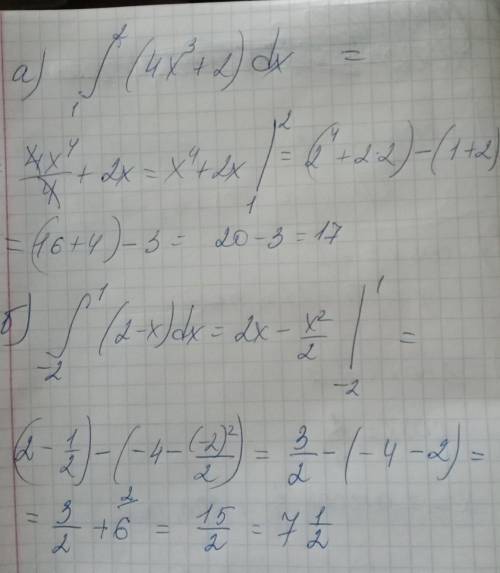 а) ∫₁² (4x³+2) dx =
4x⁴/4 + 2x = x⁴+2x |₁² = (2⁴+2·2)-(1+2)
= (16+4)-3 = 20-3 = 17
б) ∫₋₂¹ (2-x)dx = 2x - x²/2 |₋₂¹ =
(2 - 1/2) - (-4 - (-2)²/2) = 3/2 - (-4-2) =
= 3/2 + 6² = 15/2 = 7 1/2